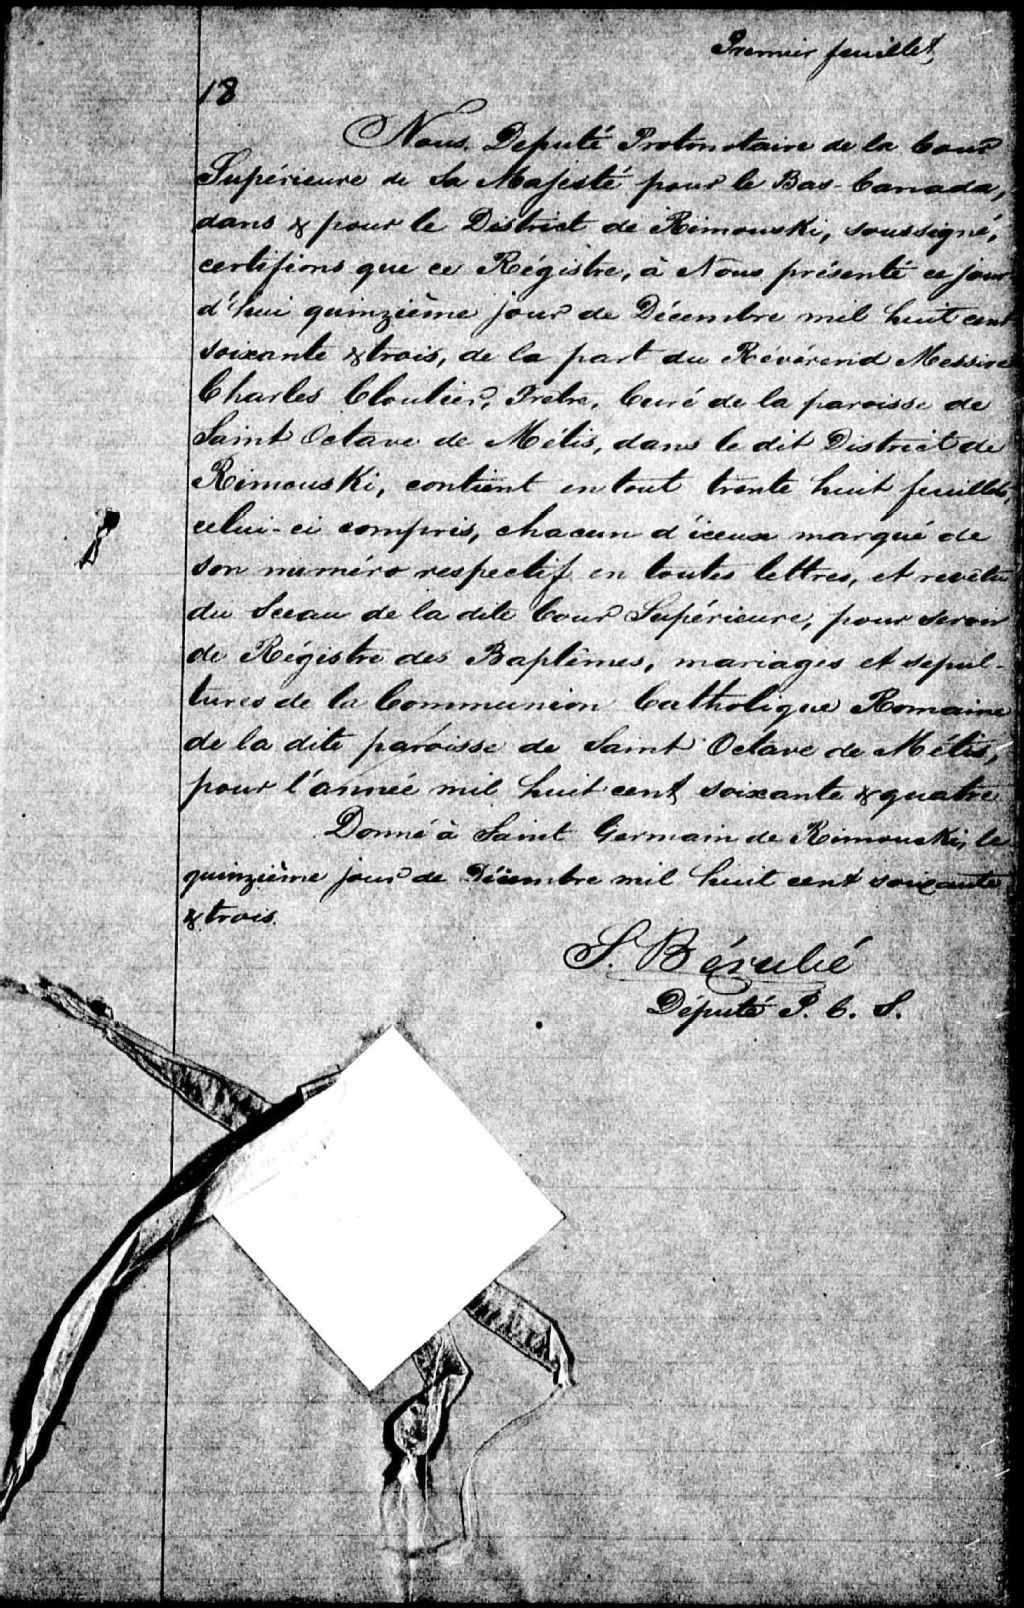 Premier feuillet,
18
Nous, Député Protonotaire de la Cour
Supérieure de Sa Majesté pour le Bas-Canada,
dans & pour le District de Rimouski, soussigné,
certifions que ce Régistre, à Nous présenté ce jour-
d'hui quinzième jour de Décembre mil huit cent
soixante & trois, de la part du Révérend Messire
Charles Cloutier, Prêtre, Curé de la paroisse de
Saint Octave de Métis, dans le dit District de
Rimouski, contient en tout trente huit feuillets,
celui-ci compris, chacun d'iceux marqué de
son numéro respectif en toutes lettres, et revêtu
du Sceau de la dite Cour Supérieure, pour servir
de Régistre des Baptêmes, mariages et sépul-
tures de la Communion Catholique Romaine
de la dite paroisse de Saint Octave de Métis,
pour l'année mil huit cent soixante & quatre
Donné à Saint Germain de Rimouski, le
quinzième jour de Décembre mil huit cent soixante
& trois.
S. Bérubé
Député P. C. S.